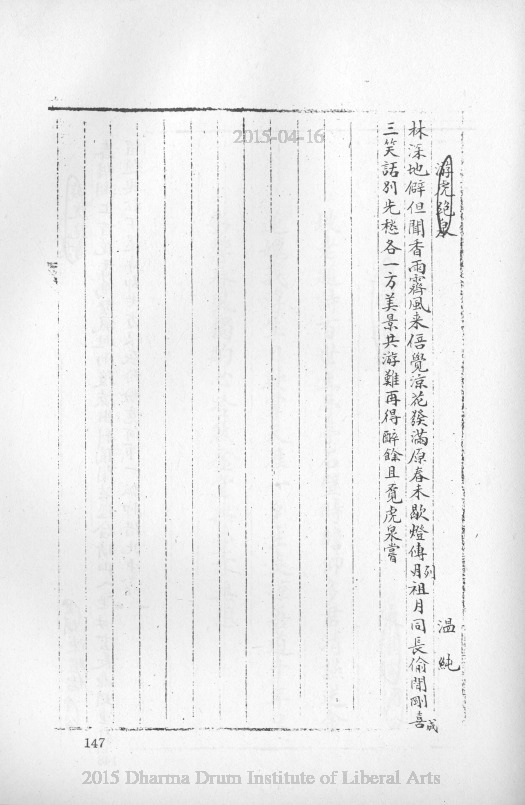 游虎跑泉
温純
林深地僻但聞香雨霽風来倍覺涼花發滿原春未歇燈傳列祖月同長偷閒剛喜成
三笑話別先愁各一方美景共游難再得醉餘且覓虎泉嘗
147
2015-04-16
2015 Dharma Drum Institute of Liberal Arts